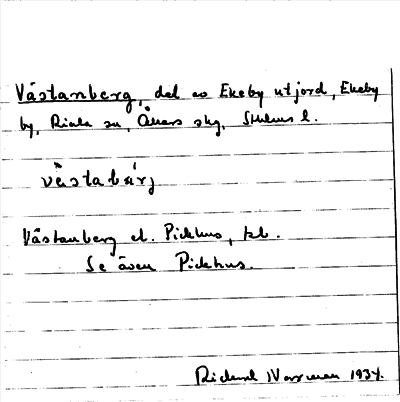 Västanberg, del av Ekeby utjord, Ekeby
by, Riala sn, Åkers skg, Sthlms l.
västabärj
Västanberg el. Pickhus, tk.
Se även Pickhus.
Rickard Wassman 1934.